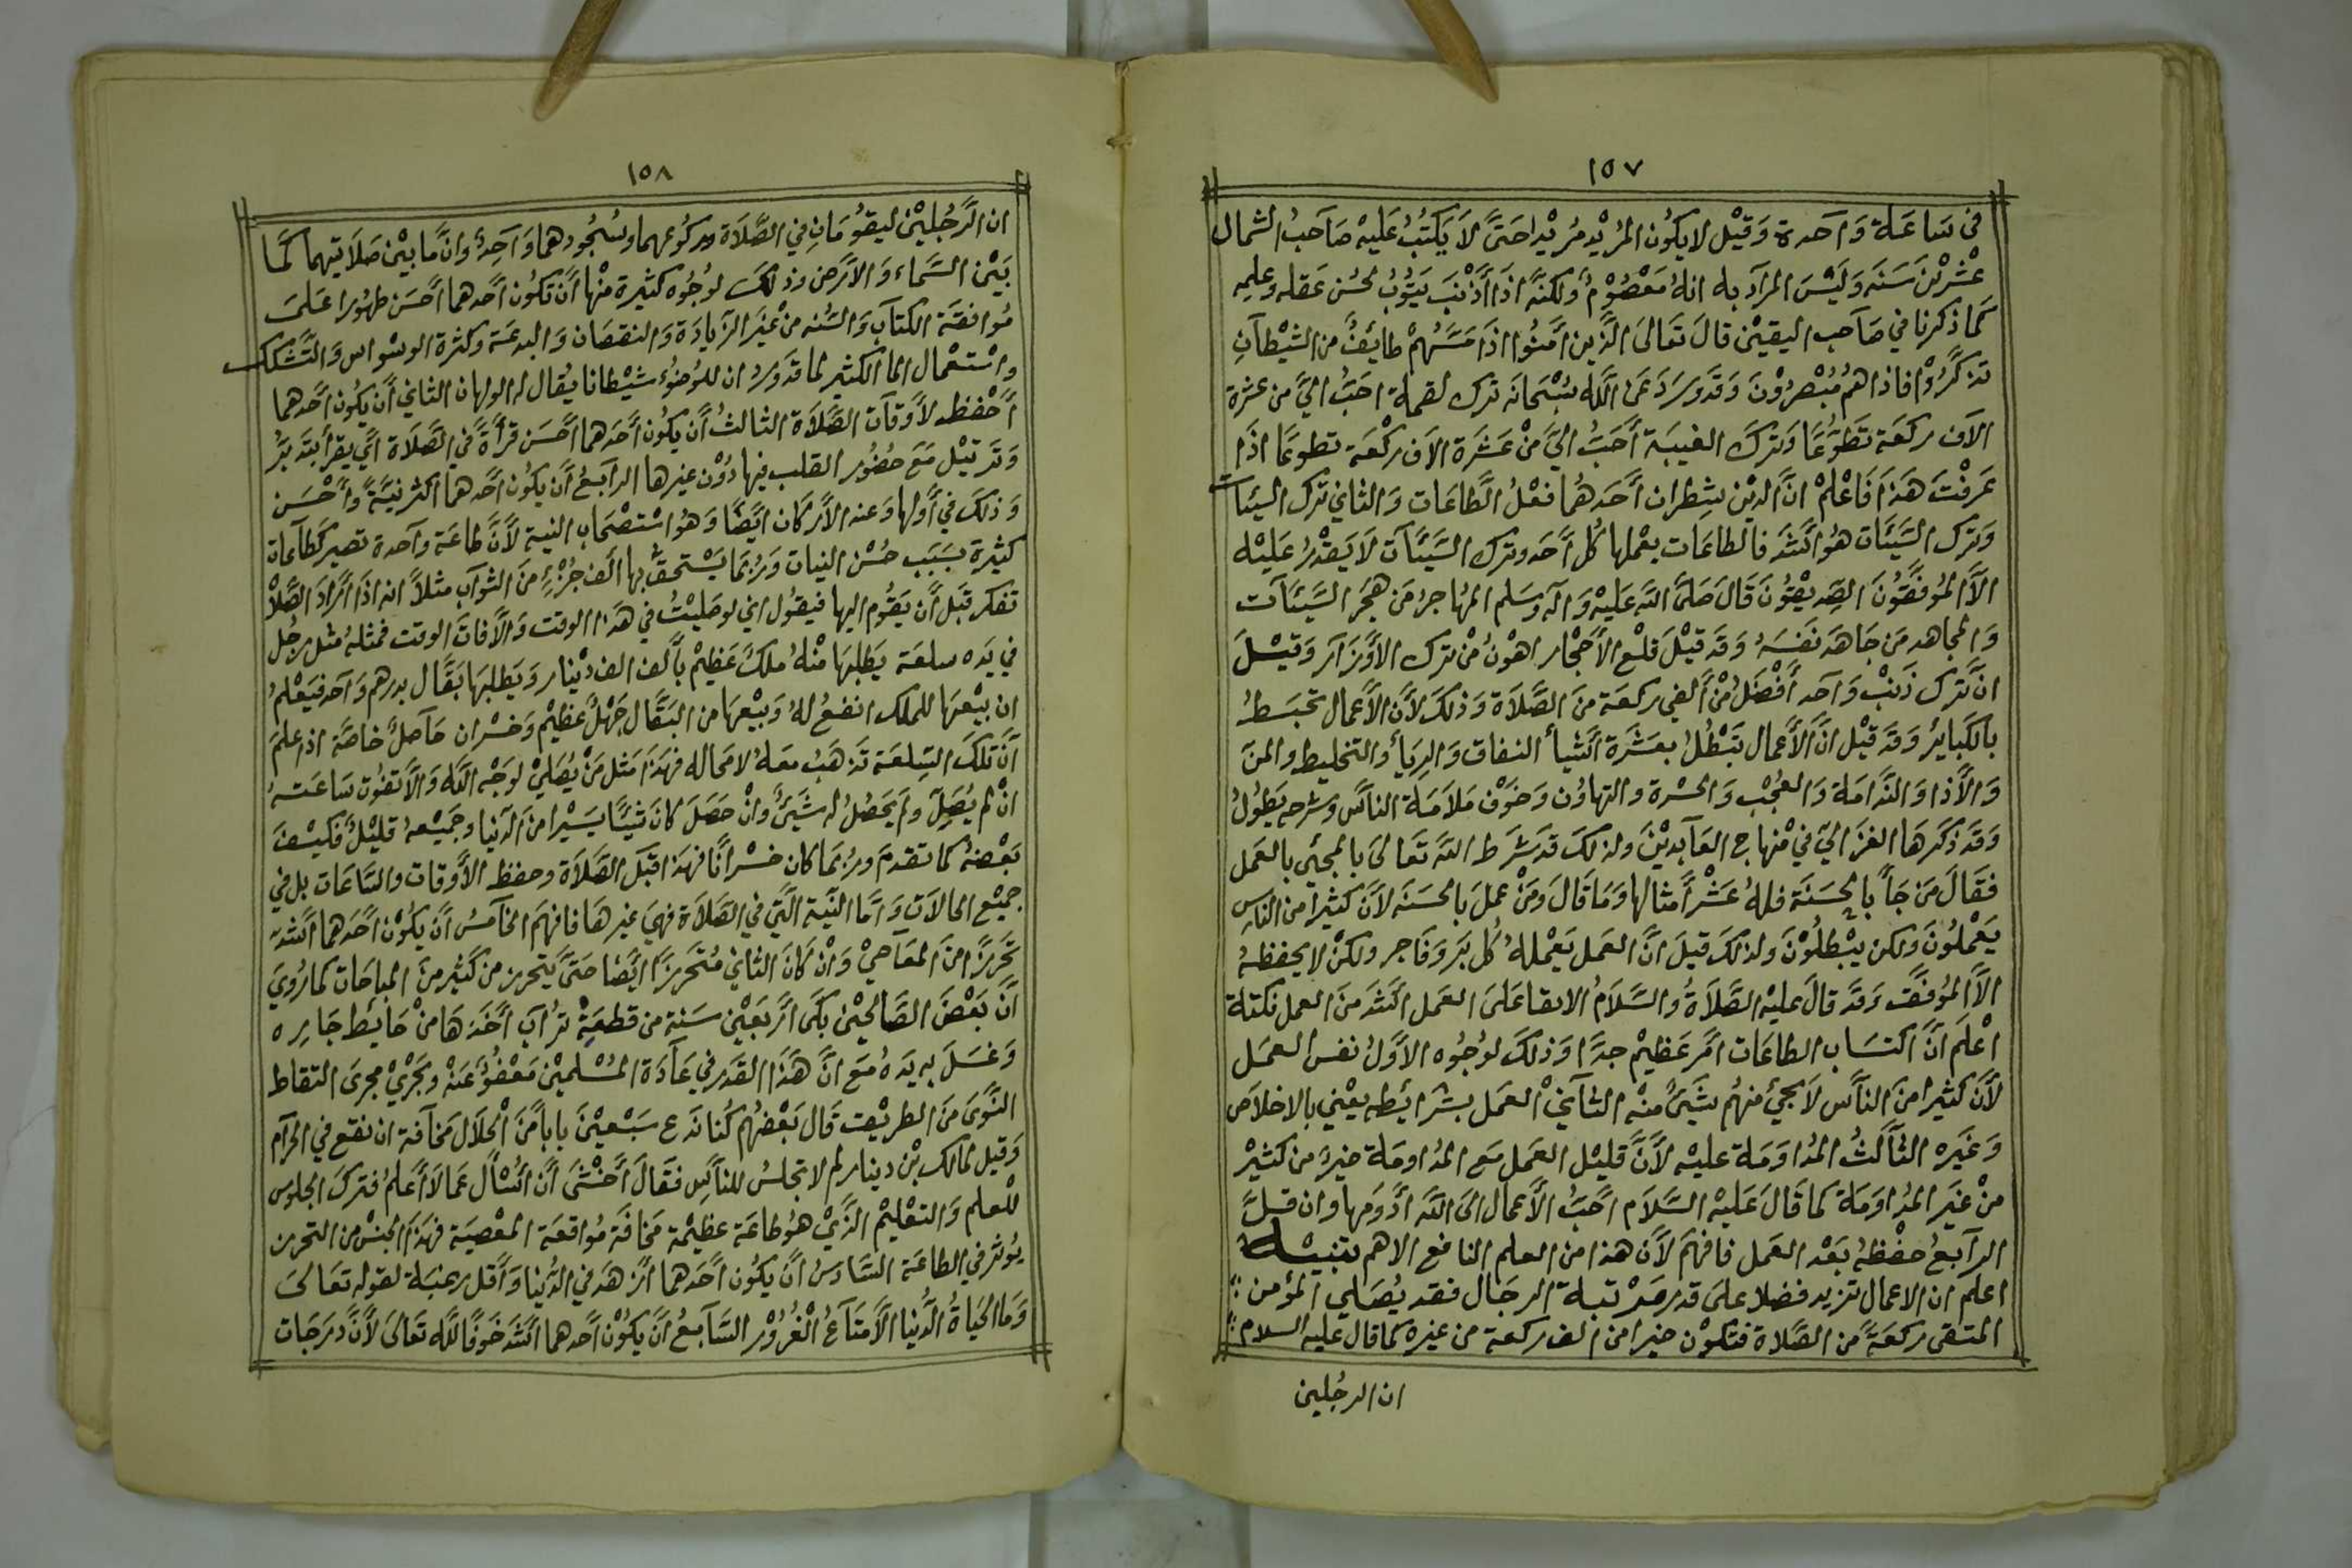 ١٥٧
في ساعة واحدة وقيل لا يكون المريد مريدا حتى لا يكتب عليه صاحب الشمال
عشرين سنة وليس المراد به انه معصوم ولكنه اذا أذنب يتوب لحسن عقله وعلمه
كما ذكرنا في صاحب اليقين قال تعالى الذين أمنوا اذا مسهم طائف من الشيطان
تذكروا فاذا هم مبصرون وقد ورد عن الله سبحانه ترك لقمة احب الي من عشرة
الاف ركعة تطوعا وترك الغيبة أحب الي من عشرة الاف ركعة تطوعا اذا
عرفت هذا فاعلم ان الدين شطران أحدهما فعل الطاعات والثاني ترك السيئات
وترك السيئات هو اشد فالطاعات يعملها كل أحد وترك السيئات لا يقدر عليه
الا الموفقون الصديقون قال صلى الله عليه وآله وسلم المهاجر من هجر السيئات
والمجاهد من جاهد نفسه وقد قيل قلع الأحجار اهون من ترك الأوزار وقيل
ان ترك ذنب واحد أفضل من ألفي ركعة من الصلاة وذلك لأن الأعمال تحبط
بالكبائر وقد قيل ان الأعمال تبطل بعشرة أشيأ النفاق والريأ والتخليط والمن
والأذا والندامة والعجب والحسرة والتهاون وخوف ملامة الناس وشرحه يطول
وقد ذكرها الغزالي في منهاج العابدين ولذلك قد شرط الله تعالى بالمجئي بالعمل
فقال من جأ بالحسنة فله عشر أمثالها وما قال ومن عمل بالحسنة لأن كثيرا من الناس
يعملون ولكن يبطلون ولذلك قيل ان العمل يعمله كل بر وفاجر ولكن لا يحفظه
الا الموفق وقد قال عليه الصلاة والسلام الابقا على العمل اشد من العمل نكتة
اعلم ان اكتساب الطاعات امر عظيم جدا وذلك لوجوه الأول نفس العمل
لأن كثيرا من الناس لا يجئ منهم شئ منه الثاني العمل بشرائطه يعني بالاخلاص
وغيره الثالث المداومة عليه لأن قليل العمل مع المداومة خير من كثير
من غير المداومة كما قال عليه السلام احب الأعمال الى الله أدومها وان قل
الرابع حفظه بعد العمل فافهم لأن هذا من العلم النافع الاهم تنبيه
اعلم ان الاعمال تزيد فضلا على قدر مرتبة الرجال فقد يصلي المؤمن
المتقى ركعة من الصلاة فتكون خيرا من الف ركعة من غيره كما قال عليه السلام
ان الرجلين
١٥٨
ان الرجلين ليقومان في الصلاة وركوعهما وسجودهما واحد وان ما بين صلاتيهما كما
بين السماء والأرض وذلك لوجوه كثيرة منها أن تكون أحدهما أحسن طهورا على
موافقة الكتاب والسنه من غير الزيادة والنقصان والبدعة وكثرة الوسواس والتشكك
واستعمال الما الكثير لما قد ورد ان للوضوء شيطانا يقال له الولهان الثاني أن يكون أحدهما
أحفظ لأوقات الصلاة الثالث أن يكون أحدهما أحسن قرأة في الصلاة أي يقرأ بتدبر
وترتيل مع حضور القلب فيها دون غيرها الرابع أن يكون أحدهما اكثر نية وأحسن
وذلك في أولها وعند الأركان ايضا وهو استصحاب النية لأن طاعة واحدة تصير كطاعات
كثيرة بسبب حسن النيات وربما يستحق بها ألف جزء من الثواب مثلا انه اذا أراد الصلاة
تفكر قبل أن يقوم اليها فيقول اني لو صليت في هذا الوقت والا فات الوقت فمثله مثل رجل
في يده سلعة يطلبها منه ملك عظيم بألف الف دينار ويطلبها بقال بدرهم واحد فيعلم
ان بيعها للملك انفع له وبيعها من البقال جهل عظيم وخسران حاصل خاصة اذا علم
أن تلك السلعة تذهب معه لا محاله فهذا مثل من يصلي لوجه الله والا تفوت ساعته
ان لم يصل ولم يحصل له شئ وان حصل كان شيئا يسيرا من الدنيا وجميعه قليل فكيف
بعضه كما تقدم وربما كان خسرانا فهذا قبل الصلاة وحفظ الأوقات والساعات بل في
جميع الحالات وأما النية التي في الصلاة فهي غيرها فافهم الخامس أن يكون أحدهما أشد
تحرزا من المعاصي وان كان الثاني متحرزا ايضا حتى يتحرز من كثير من المباحات كما روي
أن بعض الصالحين بكى أربعين سنة من قطعة تراب أخذها من حائط جاره
وغسل به يده مع ان هذا القدر في عادة المسلمين معفو عنه ويجري مجرى التقاط
النوى من الطريق قال بعضهم كنا ندع سبعين بابا من الحلال مخافة ان نقع في الحرام
وقيل لمالك بن دينار لم لا تجلس للناس فقال أخشى أن أسأل عما لا أعلم فترك الجلوس
للعلم والتعليم الذي هو طاعة عظيمة مخافة مواقعة المعصية فهذا الجنس من التحرز
يوثر في الطاعة السادس أن يكون أحدهما أزهد في الدنيا وأقل رغبة لقوله تعالى
وما الحياة الدنيا الا متاع الغرور السابع أن يكون أحدهما أشد خوفا لله تعالى لأن درجات